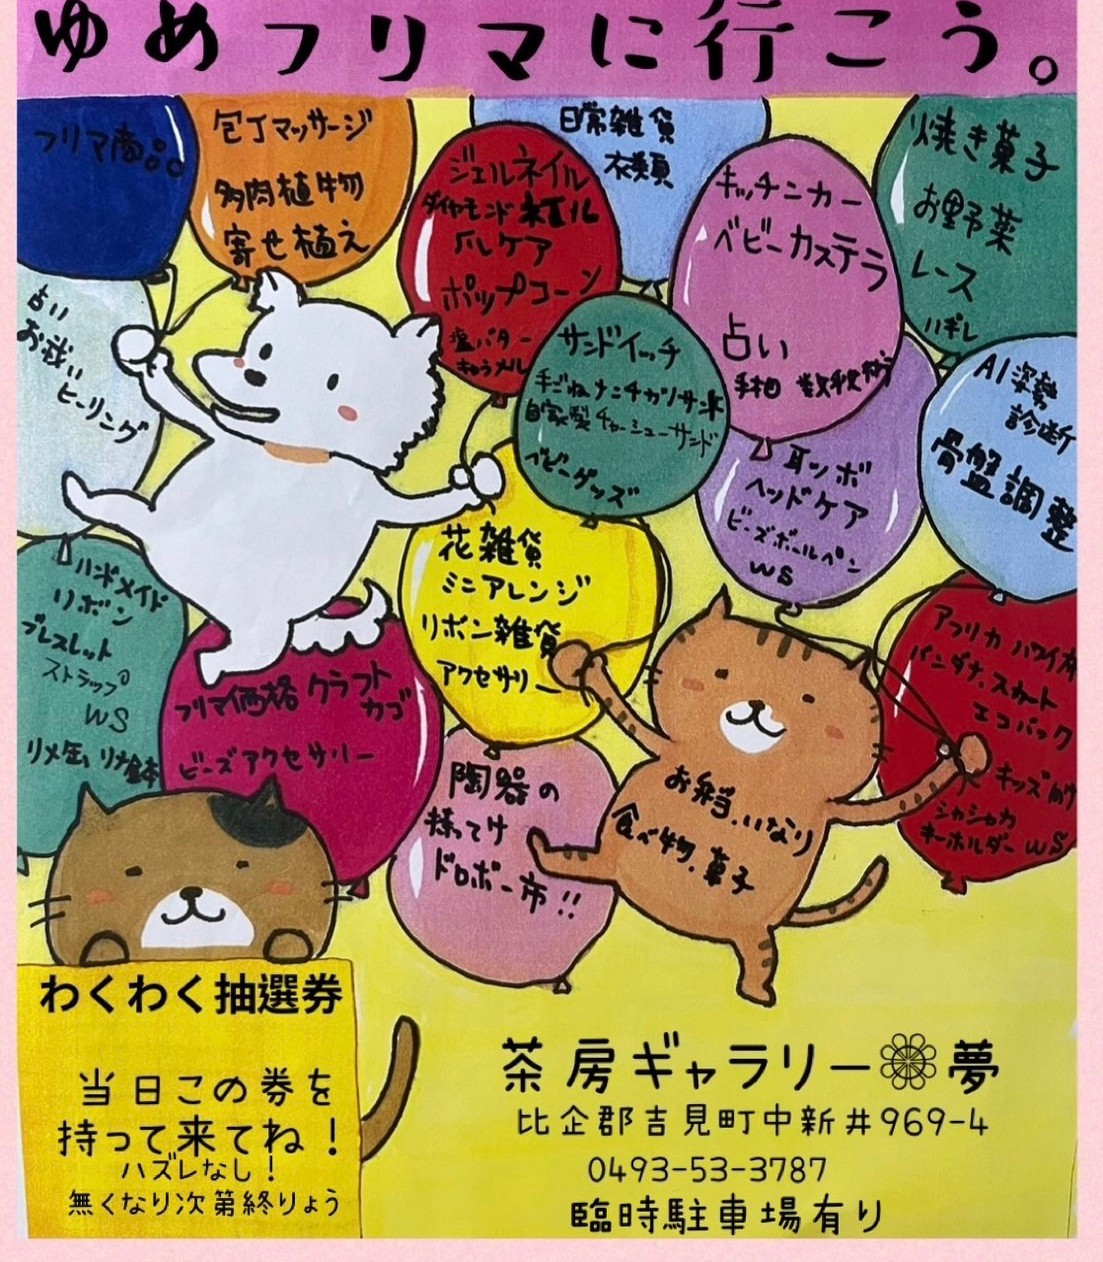 ゆめフリマに行こう。
フリマ商
包丁マッサージ
多肉植物
寄せ植え
日常雑貨
衣類
ジェルネイル
ダイヤモンドネイル
爪ケア
ポップコーン
塩バター
キャラメル
キッチンカー
ベビーカステラ
占い
手相 数秘術
焼き菓子
お野菜
レース
ハギレ
占い
お祓い
ヒーリング
サンドイッチ
自家製チャーシューサンド
ベビーグッズ
AI姿勢
診断
骨盤調整
耳ツボ
ヘッドケア
ビーズボールペン
WS
花雑貨
ミニアレンジ
リボン雑貨
アクセサリー
ハンドメイド
リボン
ブレスレット
ストラップ
WS
リメ缶、リメ鉢
フリマ価格 クラフト
カゴ
ビーズアクセサリー
アフリカ ハワイ
バンダナ、スカート
エコバック
キッズ
シャカシャカ
キーホルダー WS
陶器の
持ってけ
ドロボー市!!
お弁当、いなり
食べ物、菓子
わくわく抽選券
当日この券を
持って来てね！
ハズレなし！
無くなり次第終りょう
茶房ギャラリー夢
比企郡吉見町中新井969-4
0493-53-3787
臨時駐車場有り